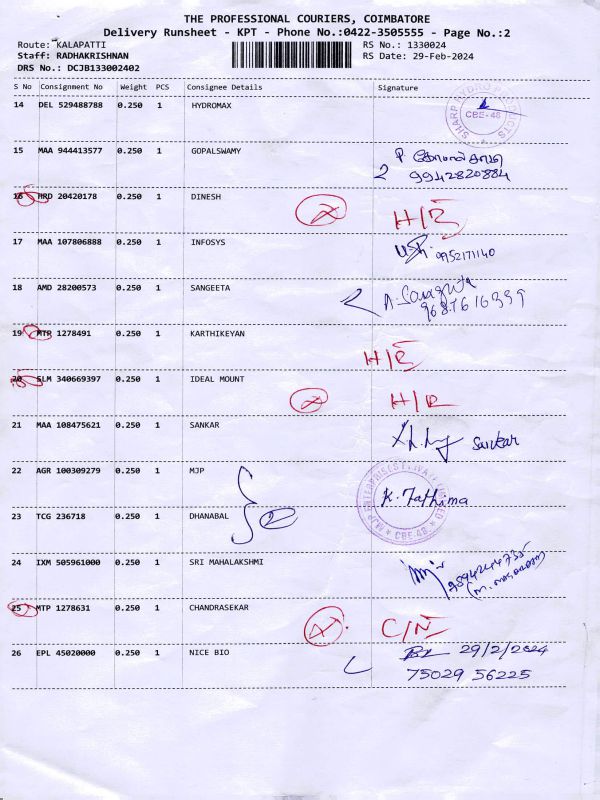 THE PROFESSIONAL COURIERS, COIMBATORE
Delivery Runsheet - KPT - Phone No.:0422-3505555 - Page No.:2
Route: KALAPATTI RS No.: 1330024
Staff: RADHAKRISHNAN RS Date: 29-Feb-2024
DRS No.: DCJB133002402
S No Consignment No Weight PCS Consignee Details Signature
14 DEL 529488788 0.250 1 HYDROMAX
SHARP HYDRO PRODUCTS CBE-48
15 MAA 944413577 0.250 1 GOPALSWAMY
2 9942820884
16 HRD 20420178 0.250 1 DINESH
H/R
17 MAA 107806888 0.250 1 INFOSYS
9952171140
18 AMD 28200573 0.250 1 SANGEETA
A. Sangeeta
9687616999
19 MTP 1278491 0.250 1 KARTHIKEYAN
H/R
20 SLM 340669397 0.250 1 IDEAL MOUNT
H/R
21 MAA 108475621 0.250 1 SANKAR
Sankar
22 AGR 100309279 0.250 1 MJP
K. Fathima
23 TCG 236718 0.250 1 DHANABAL 2
CBE-48.
24 IXM 505961000 0.250 1 SRI MAHALAKSHMI
25 MTP 1278631 0.250 1 CHANDRASEKAR
C/N
26 EPL 45020000 0.250 1 NICE BIO
29/2/2024
75029 56225